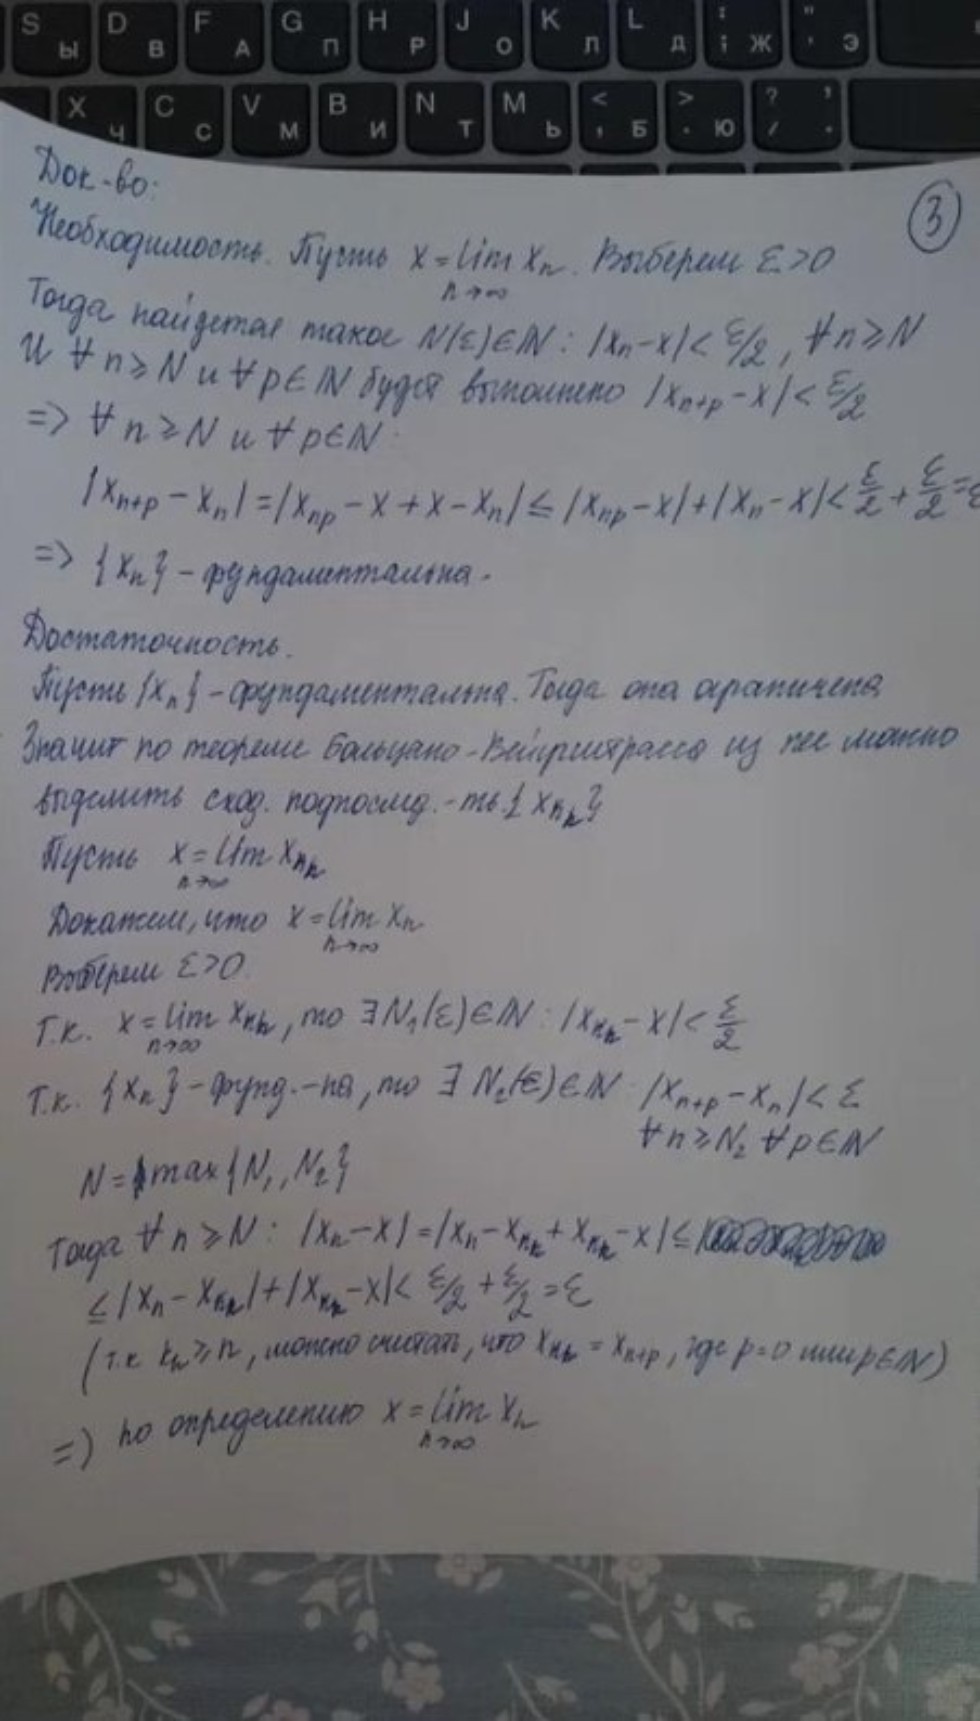 S Ы D В F А G П H Р J О K Л L Д : ; Ж " ' Э
X Ч C С V М B И N Т M Ь < , Б > . Ю ? / , .
Док-во:
3
Необходимость. Пусть x = lim xₙ. Выберем ε>0
n→∞
Тогда найдется такое N(ε)∈ℕ: |xₙ-x|< ε/2, ∀n≥N
И ∀n≥N и ∀p∈ℕ будет выполнено |xₙ₊ₚ-x|< ε/2
=> ∀n≥N и ∀p∈ℕ:
|xₙ₊ₚ - xₙ| = |xₙₚ - x + x - xₙ| ≤ |xₙₚ-x| + |xₙ-x| < ε/2 + ε/2 = ε
=> {xₙ} - фундаментальна.
Достаточность.
Пусть {xₙ} - фундаментальна. Тогда она ограничена
Значит по теореме Больцано-Вейерштрасса из нее можно
выделить сход. подпослед.-ть {x_{n_k}}
Пусть x = lim x_{n_k}
n→∞
Докажем, что x = lim xₙ
n→∞
Выберем ε>0.
Т.к. x = lim x_{n_k}, то ∃N₁(ε)∈ℕ: |x_{n_k}-x|< ε/2
n→∞
Т.к. {xₙ} - фунд.-на, то ∃ N₂(ε)∈ℕ |xₙ₊ₚ-xₙ|< ε
∀n≥N₂ ∀p∈ℕ
N = max{N₁, N₂}
Тогда ∀n≥N: |xₙ-x| = |xₙ-x_{n_k}+x_{n_k}-x| ≤
≤ |xₙ - x_{n_k}| + |x_{n_k}-x| < ε/2 + ε/2 = ε
(т.к kₙ≥n, можно считать, что x_{n_k} = xₙ₊ₚ, где p=0 или p∈ℕ)
=> по определению x = lim xₙ
n→∞